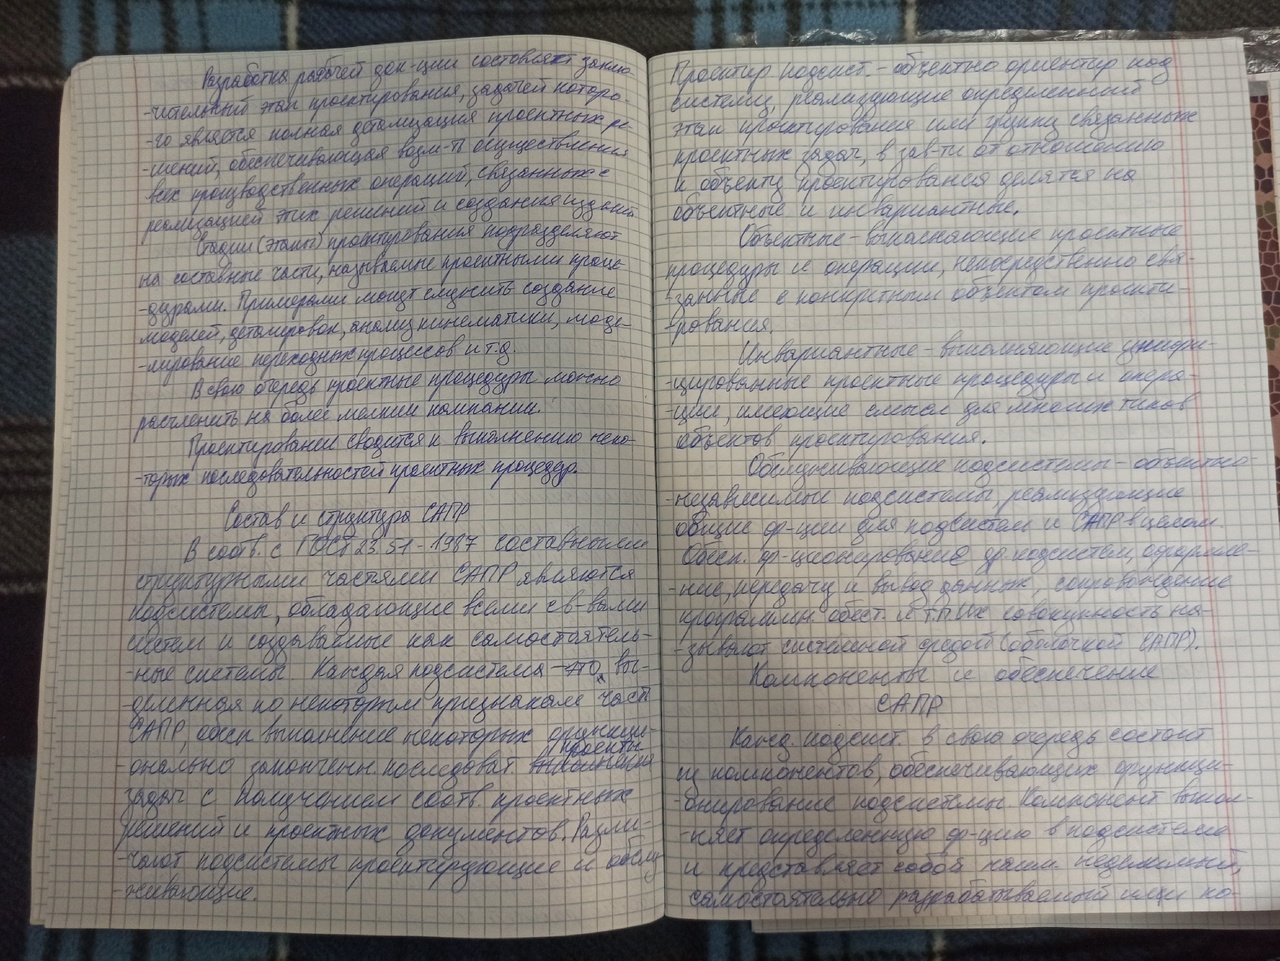 Разработка рабочей док-ции составляет заклю-
-чительный этап проектирования, задачей которо-
-го является полная детализация проектных ре-
шений, обеспечивающая возм-ть осуществления
всех производственных операций, связанных с
реализацией этих решений и создания изделий
Стадии (этапы) проектирования подразделяют
на составные части, называемые проектными проце-
-дурами. Примерами могут служить создание
моделей, деталировок, анализ кинематики, моде-
-лирование переходных процессов и т.д.
В свою очередь проектные процедуры можно
расчленить на более мелкие
Проектирование сводится к выполнению неко-
-торых последовательностей проектных процедур.
Состав и структура САПР
В соотв. с ГОСТ 23.51-1987 составными
структурными частями САПР являются
подсистемы, обладающие всеми св-вами
систем и создаваемые как самостоятель-
-ные системы. Каждая подсистема - это вы-
-деленная по некоторым признакам часть
САПР, обесп. выполнение некоторых функци-
-онально закончен. последоват. проектн.
задач с получением соотв. проектных
решений и проектных документов. Разли-
-чают подсистемы проектирующие и обслу
-живающие.
Проектир. подсист. - объектно ориентир. под
системы, реализующие определенный
этап проектирования или группу связанных
проектных задач, в зав-ти от отношению
к объекту проектирования делятся на
объектные и инвариантные.
Объектные - выполняющие проектные
процедуры и операции, непосредственно свя-
-занные с конкретным объектом проекти-
-рования.
Инвариантные - выполняющие унифи-
-цированные проектные процедуры и опера-
-ции, имеющие смысл для многих типов
объектов проектирования.
Обслуживающие подсистемы - объектно-
-независимые подсистемы, реализующие
общие ф-ции для подсистем и САПР в целом.
Обесп. ф-ционирование др. подсистем, оформле-
-ние, передачу и вывод данных, сопровождение
программн. обесп. и т.п. их совокупность на-
-зывают системной средой (оболочкой САПР).
Компоненты и обеспечение
САПР
Кажд. подсист. в свою очередь состоит
из компонентов, обеспечивающих функци-
-онирование подсистемы. Компонент выпол-
-няет определенную ф-цию в подсистеме
и представляет собой наим. неделимый,
самостоятельно разрабатываемый или по-